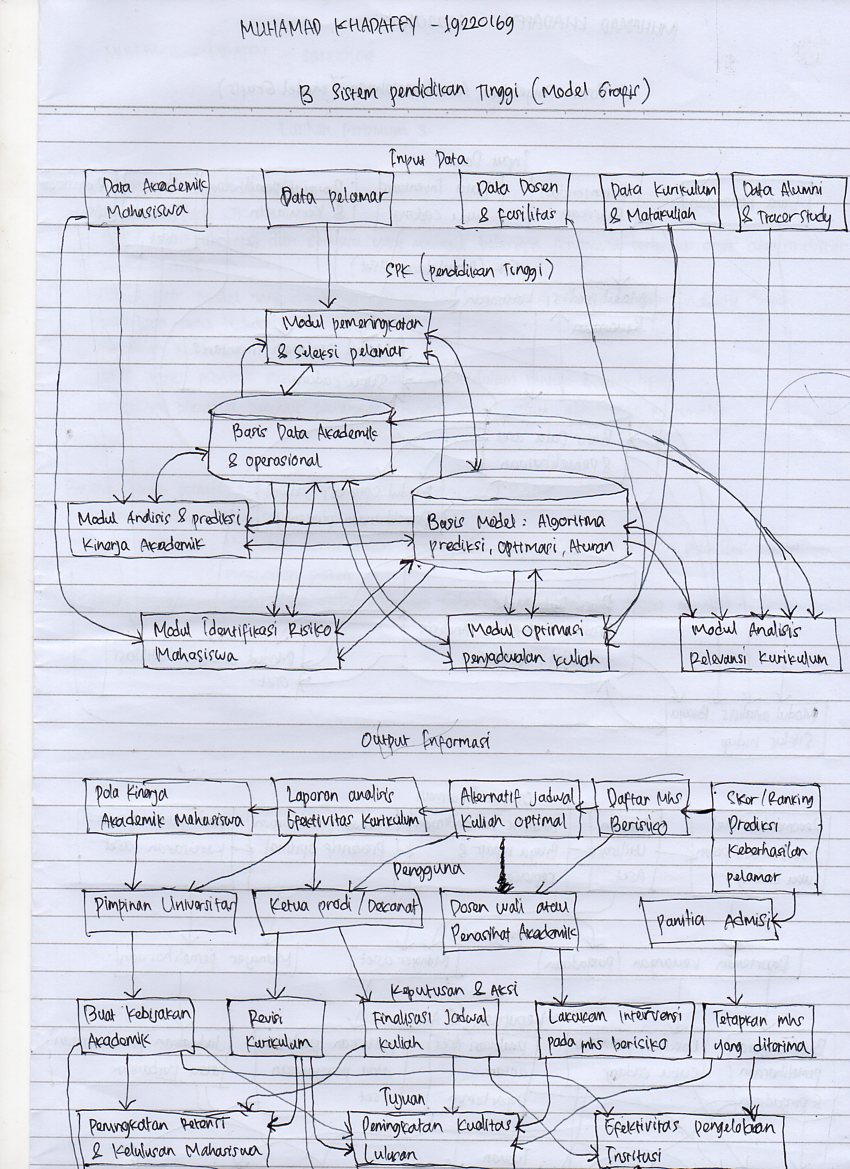 MUHAMAD KHADAFFY - 19220169
B Sistem pendidikan Tinggi (Model Grafis)
Input Data
Data Akademik
Mahasiswa
Data pelamar
Data Dosen
& fasilitas
Data Kurikulum
& Matakuliah
Data Alumni
& Tracer study
SPK (pendidikan Tinggi)
Modul pemeringkatan
& Seleksi pelamar
Basis Data Akademik
& operasional
Modul Analisis & prediksi
Kinerja Akademik
Basis Model : Algoritma
prediksi, Optimasi, Aturan
Modul Identifikasi Risiko
Mahasiswa
Modul Optimasi
penjadwalan kuliah
Modul Analisis
Relevansi Kurikulum
Output Informasi
Pola Kinerja
Akademik Mahasiswa
Laporan analisis
Efektivitas Kurikulum
Alternatif Jadwal
Kuliah Optimal
Daftar Mhs
Berisiko
Skor/Ranking
Prediksi
Keberhasilan
pelamar
Pengguna
Pimpinan Universitas
Ketua prodi / Dekanat
Dosen wali atau
Penasihat Akademik
Panitia Admisi
Keputusan & Aksi
Buat Kebijakan
Akademik
Revisi
Kurikulum
Finalisasi Jadwal
Kuliah
Lakukan Intervensi
pada mhs berisiko
Tetapkan mhs
yang diterima
Tujuan
Peningkatan Retensi
& Kelulusan Mahasiswa
Peningkatan Kualitas
Lulusan
Efektivitas pengelolaan
Institusi